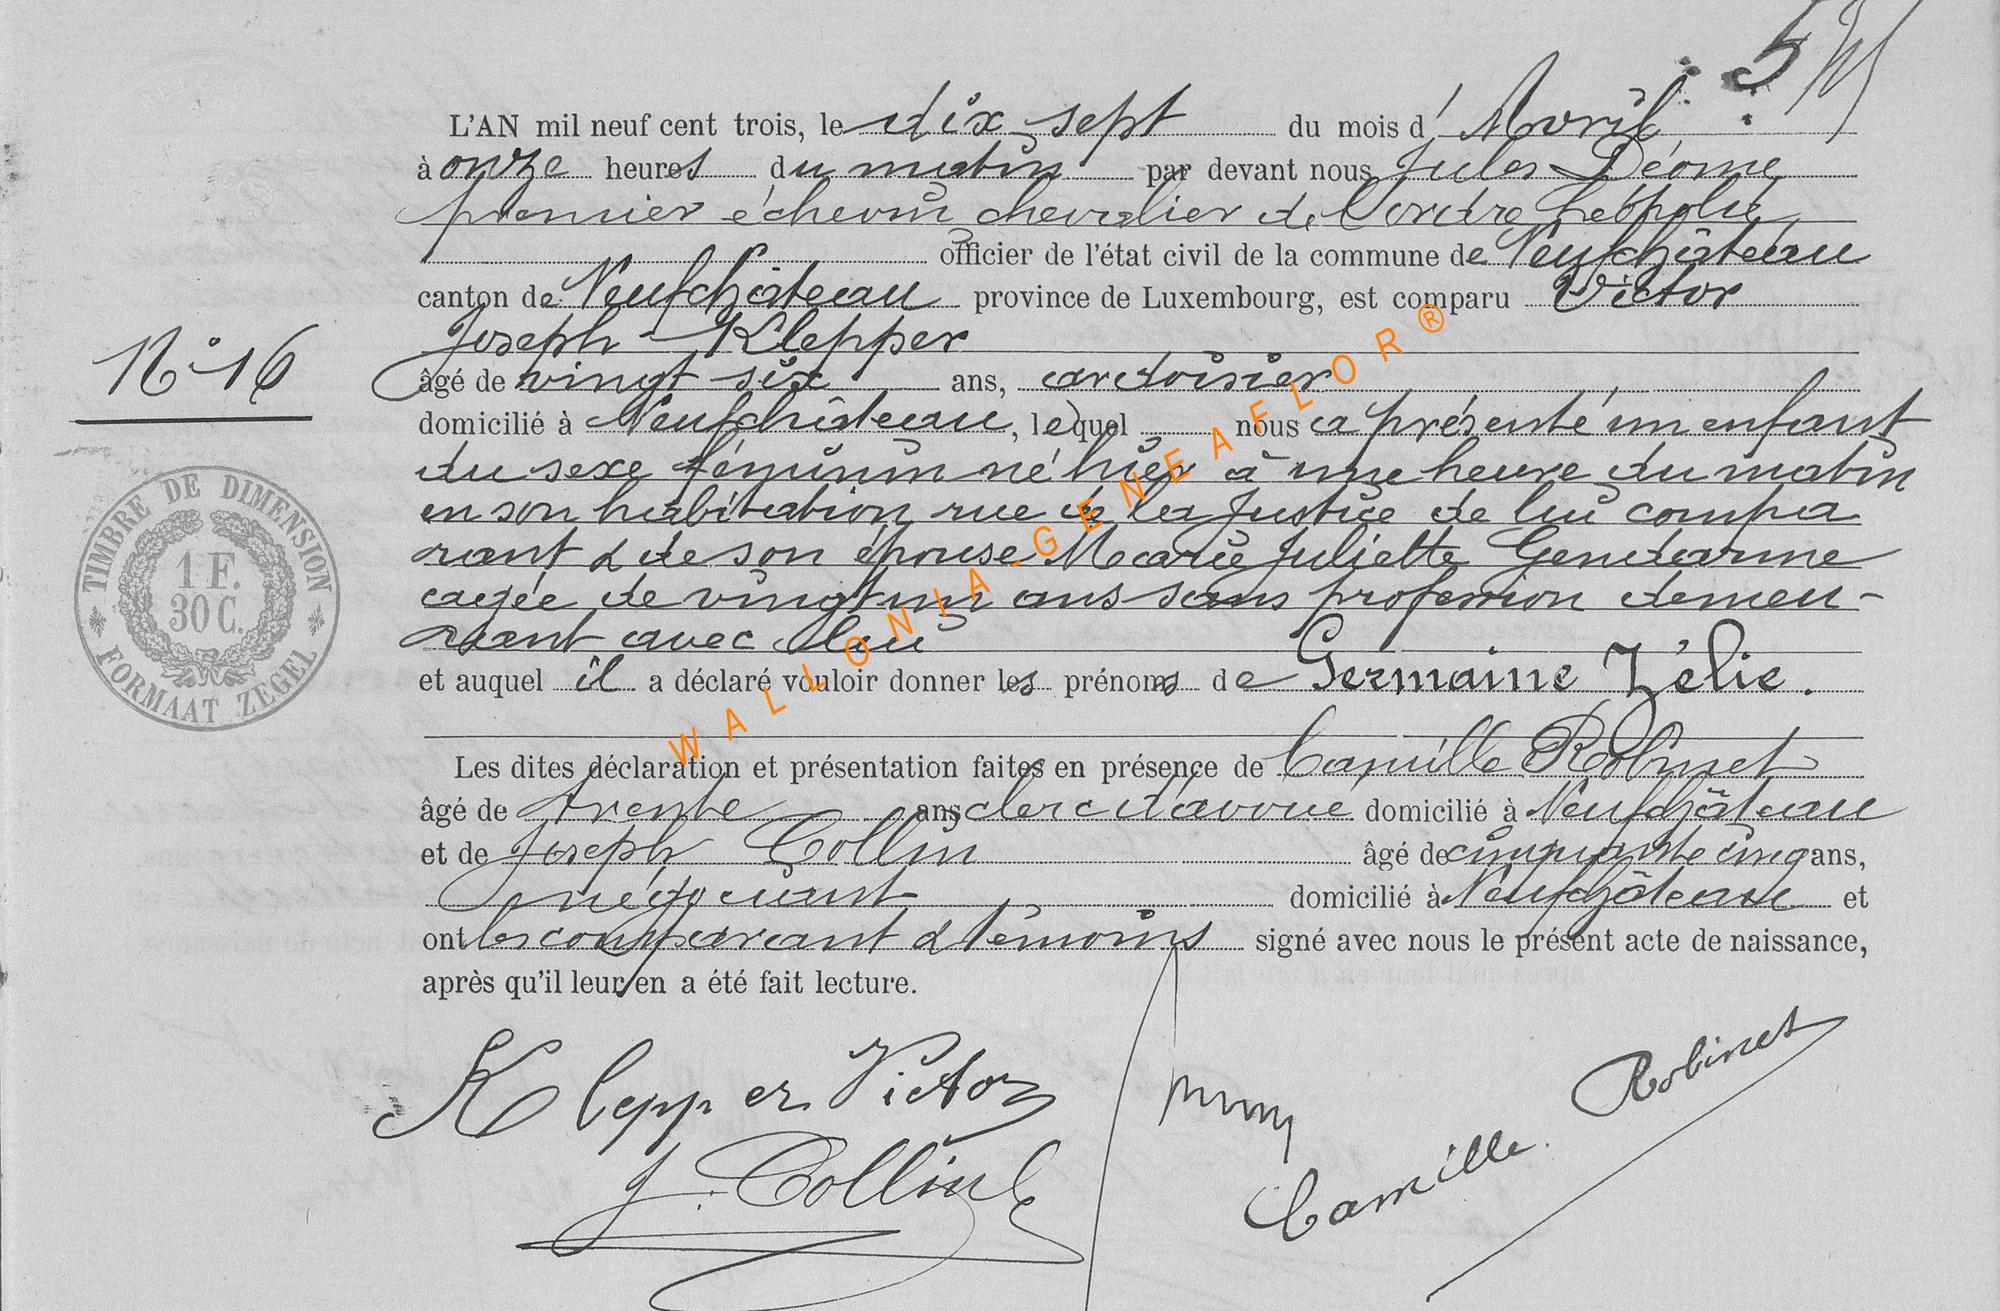 5
L'AN mil neuf cent trois, le dix sept du mois d'Avril
à onze heures du matin par devant nous Jules Déome
premier échevin chevalier de l'ordre Léopold
officier de l'état civil de la commune de Neufchâteau
canton de Neufchâteau province de Luxembourg, est comparu Victor
Joseph Klepper
N° 16
âgé de vingt six ans, ardoisier
domicilié à Neufchâteau, lequel nous a présenté un enfant
du sexe féminin né hier à une heure du matin
en son habitation rue de la Justice de lui compa
rant & de son épouse Marie Juliette Gendarme
agée de vingt un ans sans profession demeu-
rant avec lui
et auquel il a déclaré vouloir donner les prénoms de Germaine Zélie.
Les dites déclaration et présentation faites en présence de Camille Robinet
âgé de trente ans clerc d'avoué domicilié à Neufchâteau
et de Joseph Collin âgé de cinquante cinq ans,
négociant domicilié à Neufchâteau et
ont les comparant & témoins signé avec nous le présent acte de naissance,
après qu'il leur en a été fait lecture.
Klepper Victor
J. Collin
Camille Robinet
TIMBRE DE DIMENSION
1 F.
30 C.
FORMAAT ZEGEL
WALLONIA-GENEAFLOR®